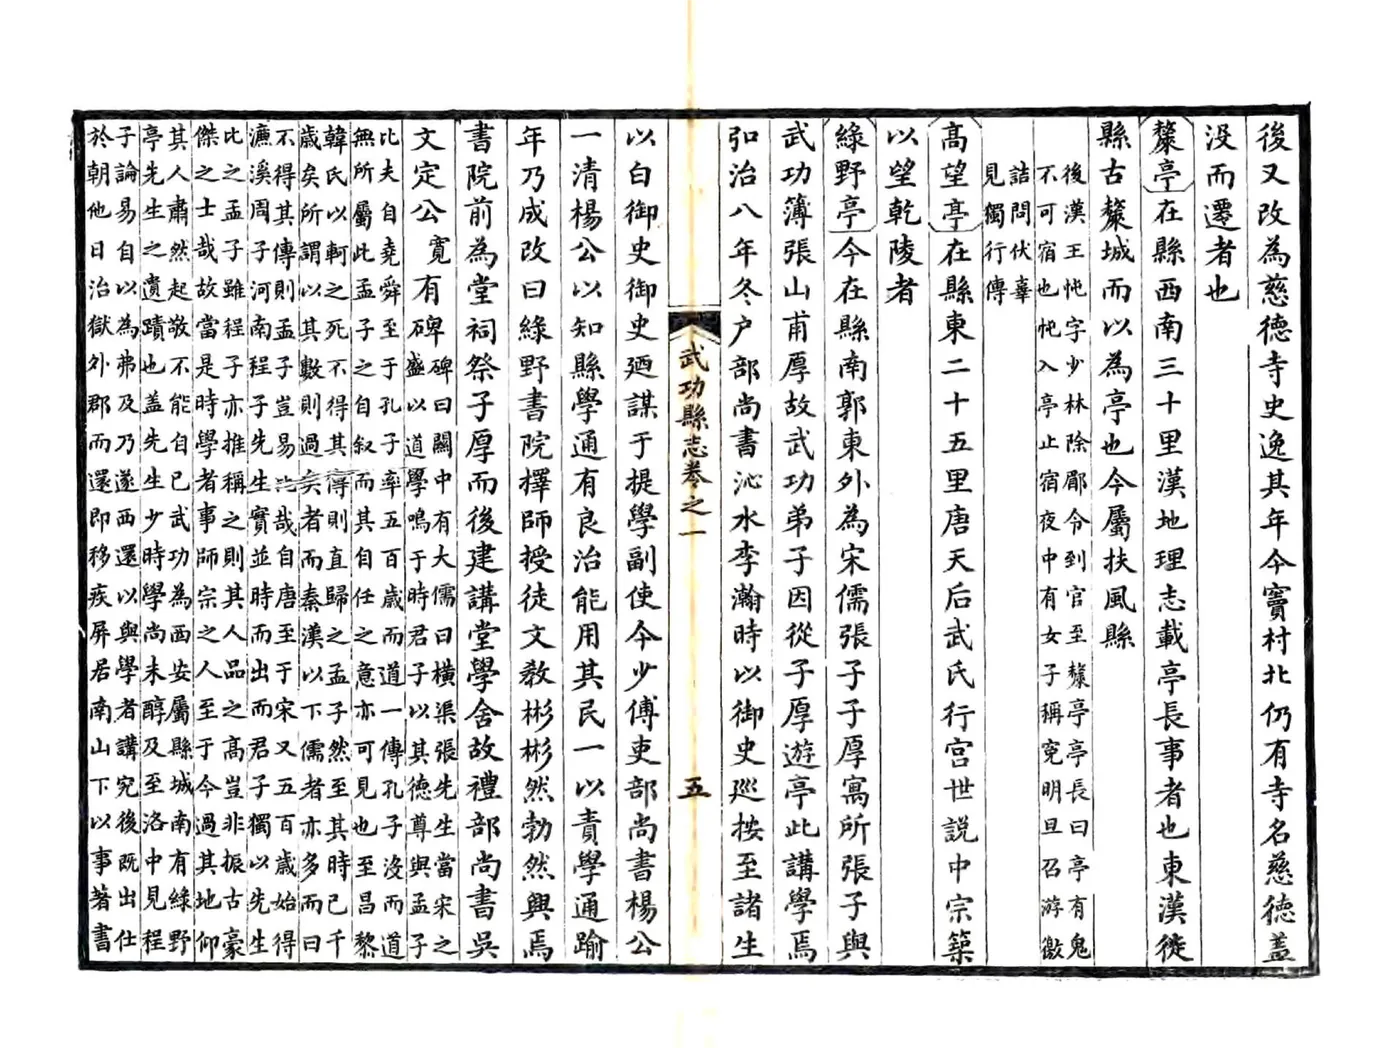 後又改為慈德寺史逸其年今竇村北仍有寺名慈德蓋
没而遷者也
斄亭在縣西南三十里漢地理志載亭長事者也東漢徙
縣古斄城而以為亭也今屬扶風縣
後漢王忳字少林除郿令到官至斄亭亭長曰亭有鬼
不可宿也忳入亭止宿夜中有女子稱寃明旦召游徼
詰問伏辜
見獨行傳
高望亭在縣東二十五里唐天后武氏行宮世説中宗築
以望乾陵者
綠野亭今在縣南郭東外為宋儒張子子厚寓所張子與
武功簿張山甫厚故武功弟子因從子厚遊亭此講學焉
弘治八年冬户部尚書沁水李瀚時以御史廵按至諸生
武功縣志卷之一
五
以白御史御史廼謀于提學副使今少傅吏部尚書楊公
一清楊公以知縣學通有良治能用其民一以責學通踰
年乃成改曰綠野書院擇師授徒文教彬彬然勃然興焉
書院前為堂祠祭子厚而後建講堂學舍故禮部尚書吳
文定公寬有碑
碑曰關中有大儒曰橫渠張先生當宋之
盛以道學鳴于時君子以其德尊與孟子
比夫自堯舜至于孔子率五百歲而道一傳孔子沒而道
無所屬此孟子之自叙而其自任之意亦可見也至昌黎
韓氏以軻之死不得其傳則直歸之孟子然至其時已千
歲矣所謂以其數則過矣者而秦漢以下儒者亦多而曰
不得其傳則孟子豈易比哉自唐至于宋又五百歲始得
濂溪周子河南程子先生實並時而出而君子獨以先生
比之孟子雖程子亦推稱之則其人品之高豈非振古豪
傑之士哉故當是時學者事師宗之人至于今過其地仰
其人肅然起敬不能自已武功為西安屬縣城南有綠野
亭先生之遺蹟也蓋先生少時學尚未醇及至洛中見程
子論易自以為弗及乃遂西還以與學者講究後既出仕
於朝他日治獄外郡而還即移疾屏居南山下以事著書